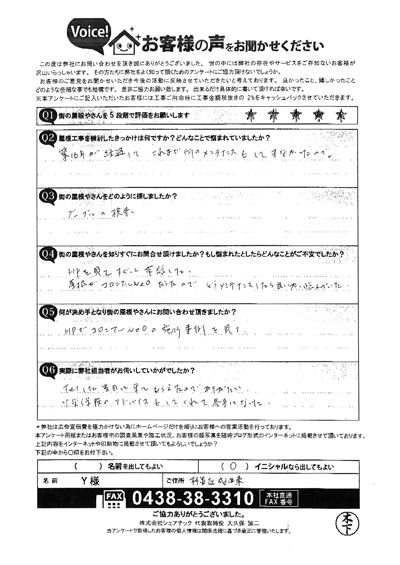 Voice!
お客様の声をお聞かせください
この度は弊社にお問い合わせを頂き誠にありがとうございました。世の中には弊社の存在やサービスをご存知ないお客様が
沢山いらっしゃいます。その方たちに弊社をよく知って頂くためのアンケートにご協力頂けないでしょうか。
お客様のご意見をお聞かせいただき今後の活動に活かさせていただきたいと考えております。良かったこと、嬉しかったこと
どのような些細な事でも結構です。是非ご協力お願い致します。出来るだけ具体的に書いて頂ければ幸いです。
※本アンケートにご記入いただいたお客様には工事ご用命時に工事金額税抜きの2%をキャッシュバックさせていただきます。
Q1 街の屋根やさんを5段階で評価をお願いします
Q2 屋根工事を検討したきっかけは何ですか?どんなことで悩まれていましたか?
築16年が経過して これまで何のメンテナンスもしてきなかったので。
Q3 街の屋根やさんをどのように探しましたか?
グーグルの検索
Q4 街の屋根やさんを知りすぐにお問合せ頂けましたか?もし悩まれたとしたらどんなことがご不安でしたか?
HPを見てすぐに電話した。
屋根がコロニアルNEOだったので どうメンテナンスしたら良いか 悩んでいた
Q5 何が決め手となり街の屋根やさんにお問い合わせ頂きましたか?
HPでコロニアルNEOの施工事例を見て
Q6 実際に弊社担当者がお伺いしていかがでしたか?
*弊社は広告宣伝費を極力かけない為にホームページだけを頼りにお客様への営業活動を行っております。
本アンケート用紙またはお客様宅の調査風景や施工状況、お客様の顔写真を随時ブログ形式のインターネットに掲載させて頂いております。
上記内容をインターネットや印刷物に掲載させて頂いてもよろしいでしょうか?
下記の中から○印をお付下さい。
( ) 名前を出してもよい ( ○ ) イニシャルなら出してもよい
名前 Y様 ご住所
FAX 0438-38-3310 本社直通FAX番号
ご協力ありがとうございました。
株式会社シェアテック 代表取締役 大久保 誠二
当アンケートで取得したお客様の個人情報は関係法規に基づき適正に管理いたします。
木下